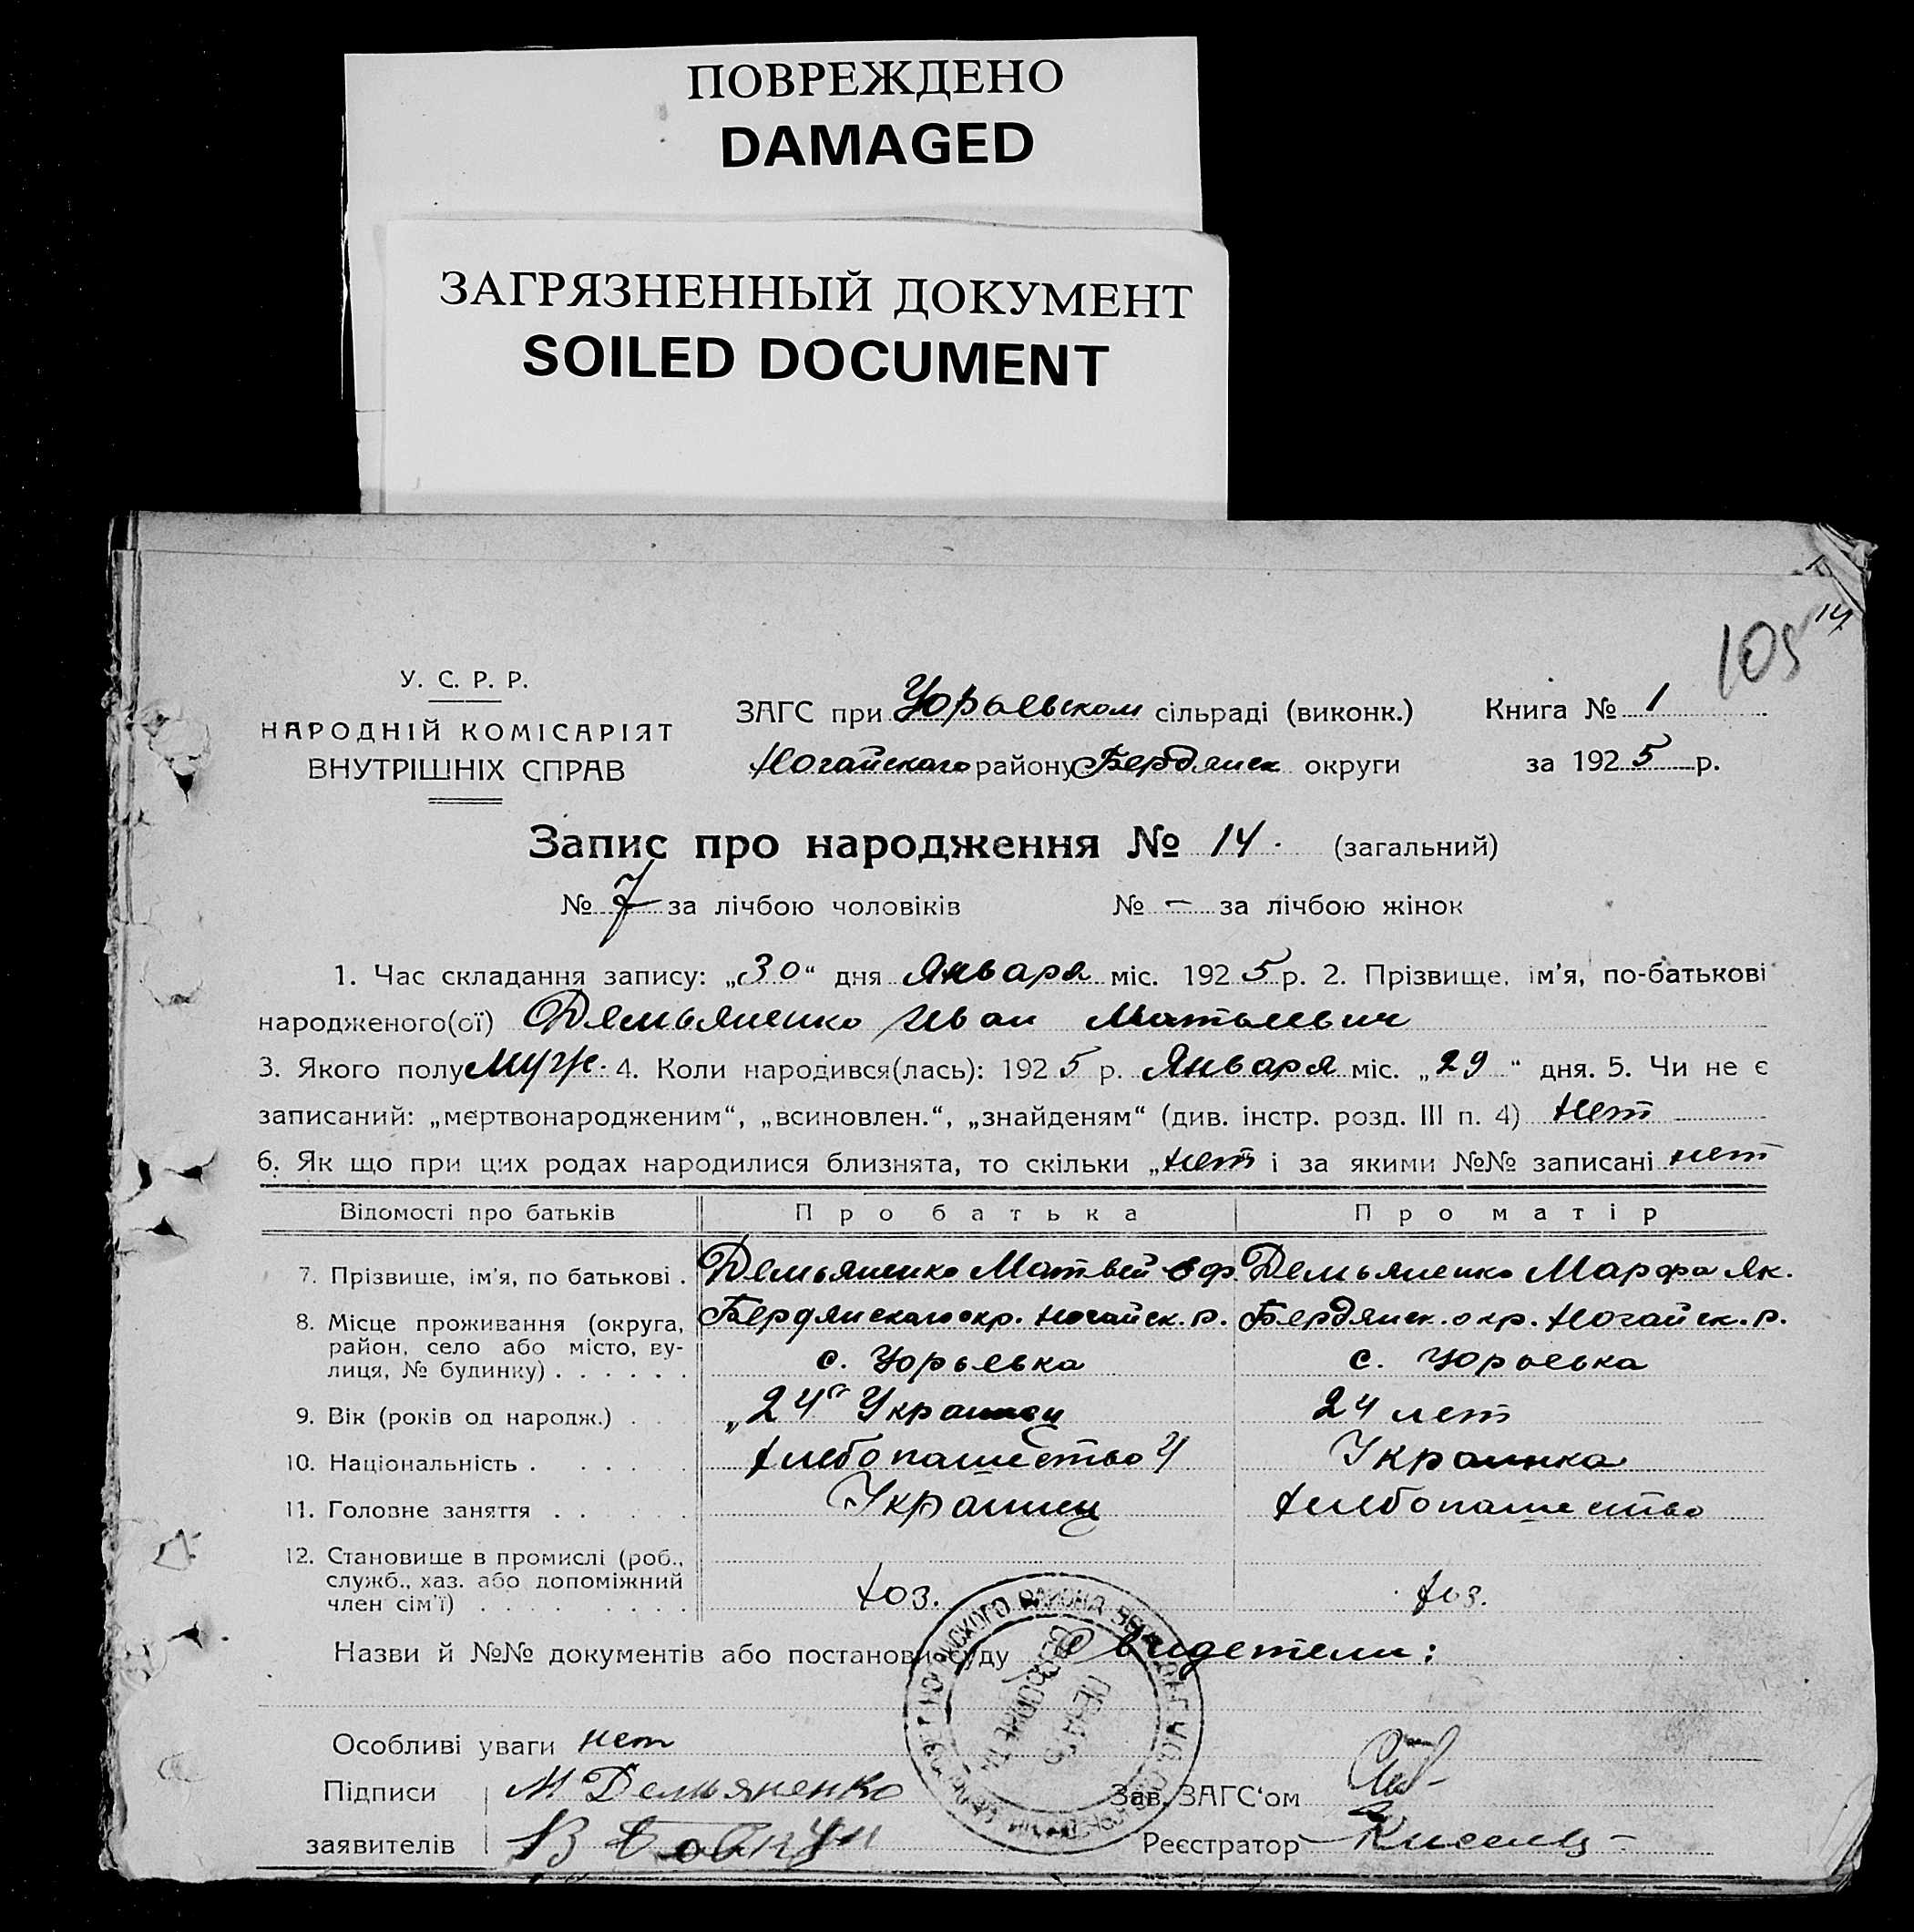 ПОВРЕЖДЕНО
DAMAGED
ЗАГРЯЗНЕННЫЙ ДОКУМЕНТ
SOILED DOCUMENT
14
105
У. С. Р. Р.
НАРОДНІЙ КОМІСАРІЯТ
ВНУТРІШНІХ СПРАВ
ЗАГС при Юрьевском сільраді (виконк.)
Ногайского району Бердянск округи
Книга № 1
за 1925 р.
Запис про народження № 14. (загальний)
№ 7 за лічбою чоловіків № – за лічбою жінок
1. Час складання запису: „30“ дня Января міс. 1925 р. 2. Прізвище, ім'я, по-батькові
народженого(ої) Демьяненко Иван Матьевич
3. Якого полу Муж. 4. Коли народився(лась): 1925 р. Января міс. „29“ дня. 5. Чи не є
записаний: „мертвонародженим“, „всиновлен.“, „знайденям“ (див. інстр. розд. III п. 4) нет
6. Як що при цих родах народилися близнята, то скільки „нет і за якими №№ записані нет
Відомості про батьків Про батька Про матір
7. Прізвище, ім'я, по батькові . Демьяненко Матвей Демьяненко Марфа Як.
8. Місце проживання (округа, Бердянскаго окр. Ногайск. р. Бердянск. окр. Ногайск. р.
район, село або місто, ву-
лиця, № будинку) . . . . . . с. Юрьевка с. Юрьевка
9. Вік (років од народж.) . . „24“ Украинец 24 лет
10. Національність . . . . . Хлебопашество Украинка
11. Головне заняття . . . . . Украинец Хлебопашество
12. Становище в промислі (роб.,
служб., хаз. або допоміжний
член сім'ї) . . . . . . . . . хоз. хоз.
Назви й №№ документів або постанови суду Свидетели:
Особливі уваги нет
Підписи М Демьяненко Зав. ЗАГС'ом
заявителів Реєстратор